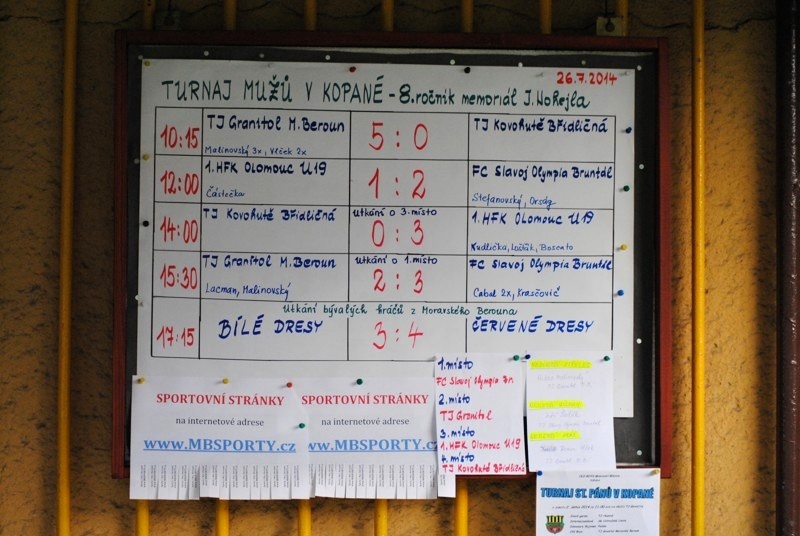 26.7.2014
TURNAJ MUŽŮ V KOPANÉ - 8. ročník memoriál J. Hohejla
10:15 TJ Granitol M. Beroun 5 : 0 TJ Kovohutě Břidličná
Malinovský 3x, Vlček 2x
12:00 1. HFK Olomouc U19 1 : 2 FC Slavoj Olympia Bruntál
Částečka Stefanovský, Orság
utkání o 3. místo
14:00 TJ Kovohutě Břidličná 0 : 3 1. HFK Olomouc U19
Kudlička,
utkání o 1. místo
15:30 TJ Granitol M. Beroun 2 : 3 FC Slavoj Olympia Bruntál
Lacman, Malinovský Cabal 2x, Krasčovič
Utkání bývalých hráčů z Moravského Berouna
17:15 BÍLÉ DRESY 3 : 4 ČERVENÉ DRESY
1. místo
FC Slavoj Olympia Br.
2. místo
TJ Granitol
3. místo
1. HFK Olomouc U19
4. místo
TJ Kovohutě Břidličná
SPORTOVNÍ STRÁNKY
na internetové adrese
www.MBSPORTY.cz
SPORTOVNÍ STRÁNKY
na internetové adrese
www.MBSPORTY.cz
TURNAJ ST. PÁNŮ V KOPANÉ